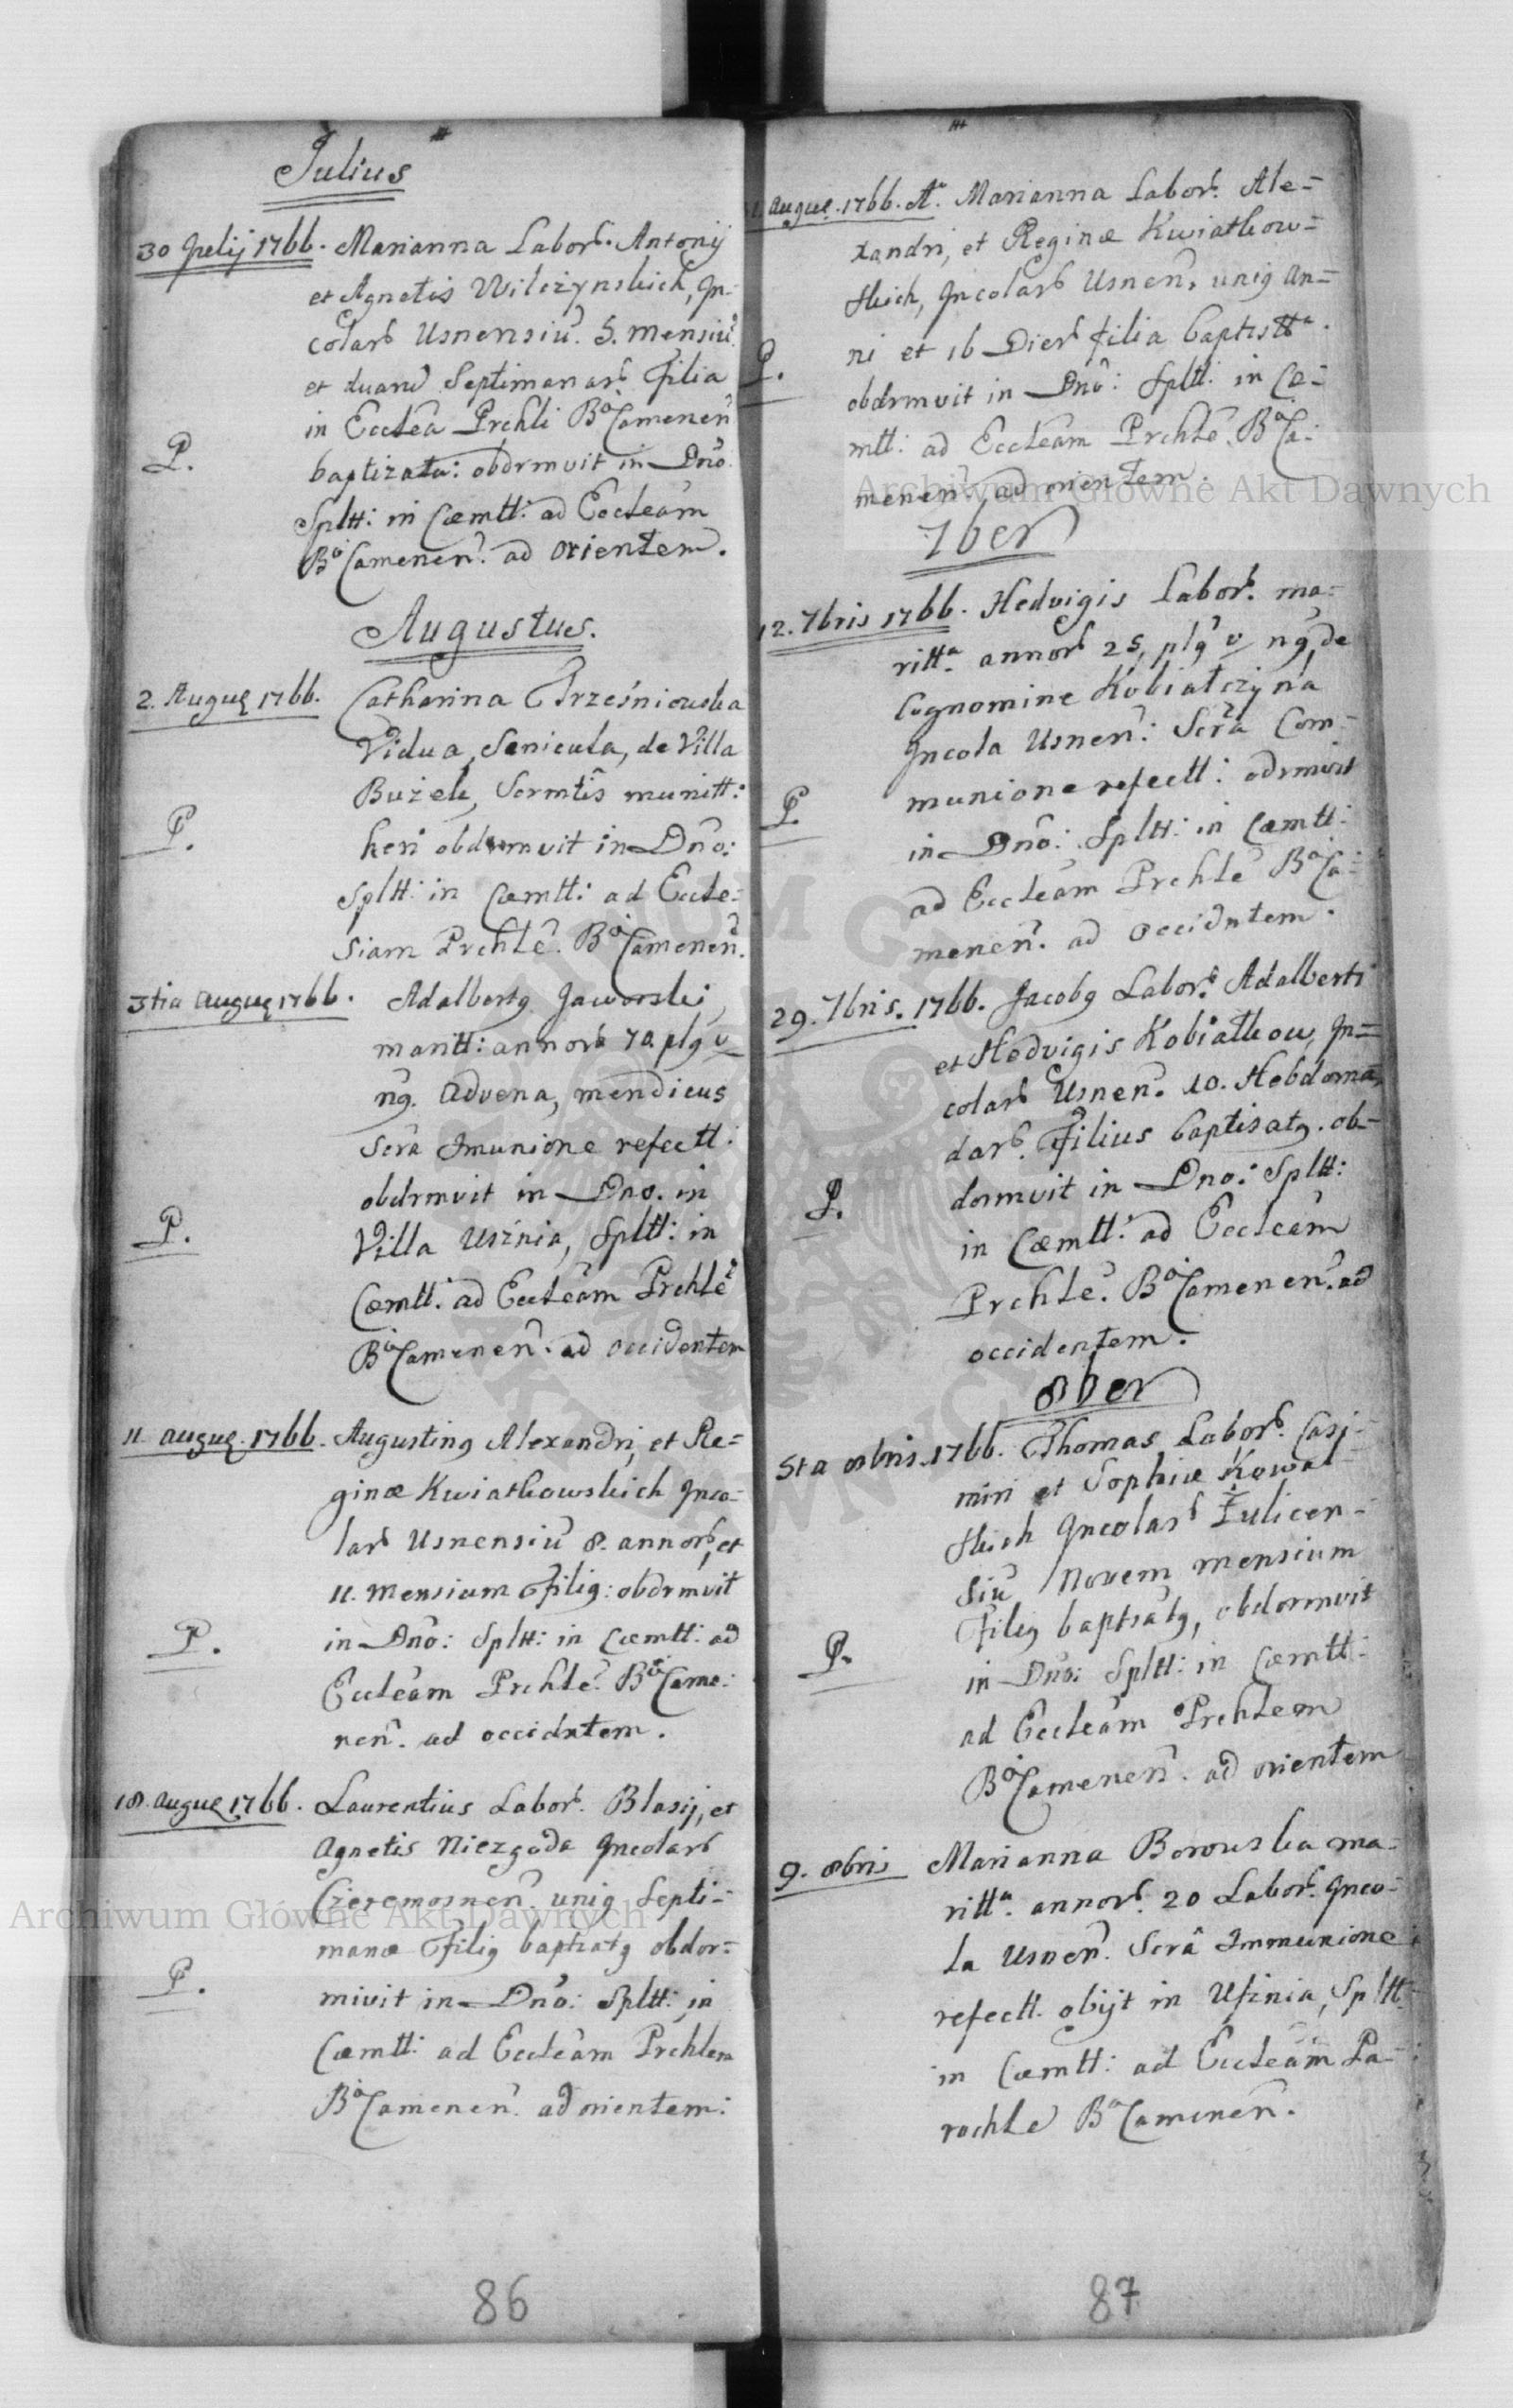 Julius
30 Julij 1766. Marianna Labor. Antonij
et Agnetis Wilczynskich, In-
colarb Usnensiũ. 5. mensiũ
et duarũ Septimanarb Filia
in Ecclea Prchli Bo Camenen
P.
baptizata: obdrmvit in Dno.
Spltt: in Cœmtt: ad Eccleam
Bo Camenen. ad orientem.
Augustus.
2. Augus 1766. Catharina Trześniowska
Vidua, Senicula, de Villa
Bużek, Scrmtis munitt:
P.
heri obdrmvit in Dno:
Spltt: in Cœmtt: ad Eccle=
siam Prchle. Bo Camenen.
3tia Augus 1766. Adalbertg Jaworski,
maritt: annorb 70. plg v
ng. advena, mendicus
Scra Imunione refectt:
obdrmvit in Dno. in
P.
Villa Usznia, Spltt: in
Cœmtt: ad Eccleam Prchle
Bo Camenen. ad occidentem
11 augus. 1766. Augusting Alexandri, et Re=
ginæ Kwiatkowskich Inco-
larb Usnensiũ 8. annorb, et
11. mensium Filig: obdrmvit
P.
in Dno: Spltt: in Cœmtt: ad
Eccleam Prchle. Bo Came:
nen. ad occidntem.
18. augus 1766. Laurentius Labor. Blasij, et
Agnetis Niezgoda Incolarb
Czeremosnen. unig Septi-
manæ Filig baptzatg obdor=
P.
mivit in Dno: Spltt: in
Cœmtt: ad Eccleam Prchlem
Bo Camenen. ad orientem:
86
augus. 1766. Marianna Labor. Ale=
xandri, et Reginæ Kwiatkow=
skich, Incolarb Usnen, unig an=
ni et 16 Dierb filia baptstta.
P.
obdrmvit in Dno: Spltt: in Cœ-
mtt: ad Eccleam Prchle. Bo Ca-
menen. ad orientem.
7ber
12. 7bris 1766. Hedvigis Labor. ma-
ritta. annorb 25, plg v ng, de
Cognomine Kobiałczyna
Incola Usnen: Scra Com-
munione refectt: odrmivit
P.
in Dno: Spltt: in Cœmtt:
ad Eccleam Prchle Bo Ca-
menen. ad occidntem.
29. 7bris. 1766. Jacobg Labor. Adalberti
et Hedvigis Kobiałkow, In=
colarb Usnen. 10. Hebdoma,
darb. Filius baptisatg. ob-
P.
dormvit in Dno: Spltt:
in Cœmtt: ad Eccleam
Prchle. Bo Camenen. ad
occidentem.
8ber
5ta 8bris. 1766. Thomas Labor. Casi-
miri et Sophiæ Kowal-
skich Incolarb Żulicen-
siũ Novem mensium
Filig baptsatg, obdormvit
P.
in Dno: Spltt: in Cœmtt:
ad Eccleam Prchlem
Bo Camenen. ad orientem
9. 8bris Marianna Borowska ma-
ritta. annorb. 20 Labor. Inco-
la Usnen. Scra Immunione
refectt. obijt in Usznia, Spltt.
in Cœmtt: ad Eccleam Pa-
rochle Bo Camenen.
87
Archiwum Główne Akt Dawnych
Archiwum Główne Akt Dawnych